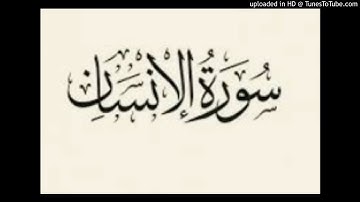 uploaded in HD @ TunesToTube.com
سُورَةُ الإِنْسَانِ